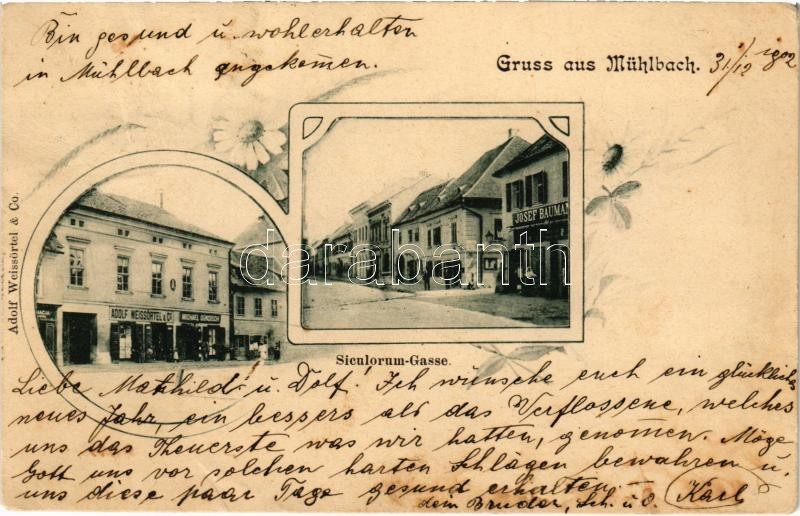 Bin gesund u. wohlerhalten
in Mühlbach angekommen.
Gruss aus Mühlbach.
31/12 1902
Adolf Weissörtel & Co.
ADOLF WEISSÖRTEL & Co
MICHAEL
JOSEF BAUMAN
darabanth
Siculorum-Gasse.
Liebe Mathild u. Dolf! Ich wünsche euch ein glückliches
neues Jahr, ein bessers als das Verflossene, welches
uns das Theuerste was wir hatten, genomen. Möge
Gott uns vor solchen harten Schlägen bewahren u.
uns diese paar Tage gesund erhalten
dem Bruder, Sch. u. O. Karl